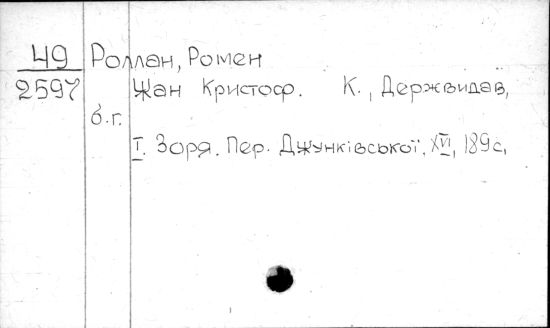 49 Роллан, Ромен
2597 Жан Кристоф. К., Держвидав,
б.г.
I. Зоря. Пер. Джунківської, XVI, 189с,